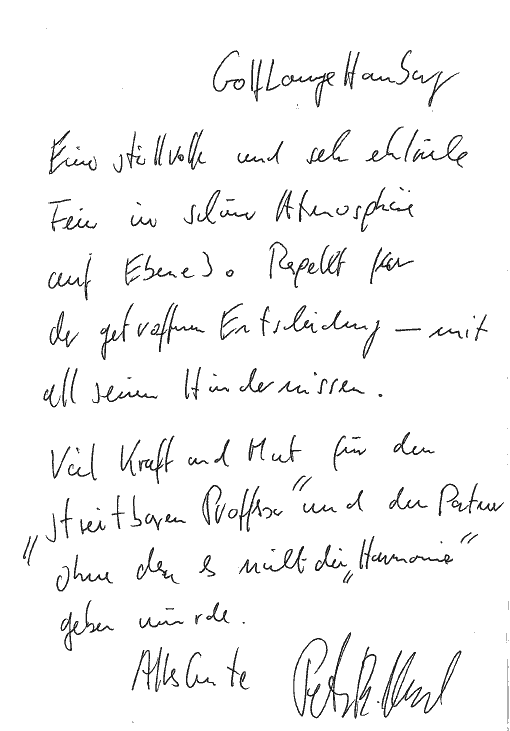 GolfLounge Hamburg
Eine stillvolle und sehr ehrliche
Feier in schöner Atmosphäre
auf Ebene 3. Respekt für
der getroffenen Entscheidung – mit
all seinen Hindernissen.
Viel Kraft und Mut für den
„streitbaren Proffesor" und den Partner
ohne den es nicht die „Harmonie"
geben würde.
Alles Gute